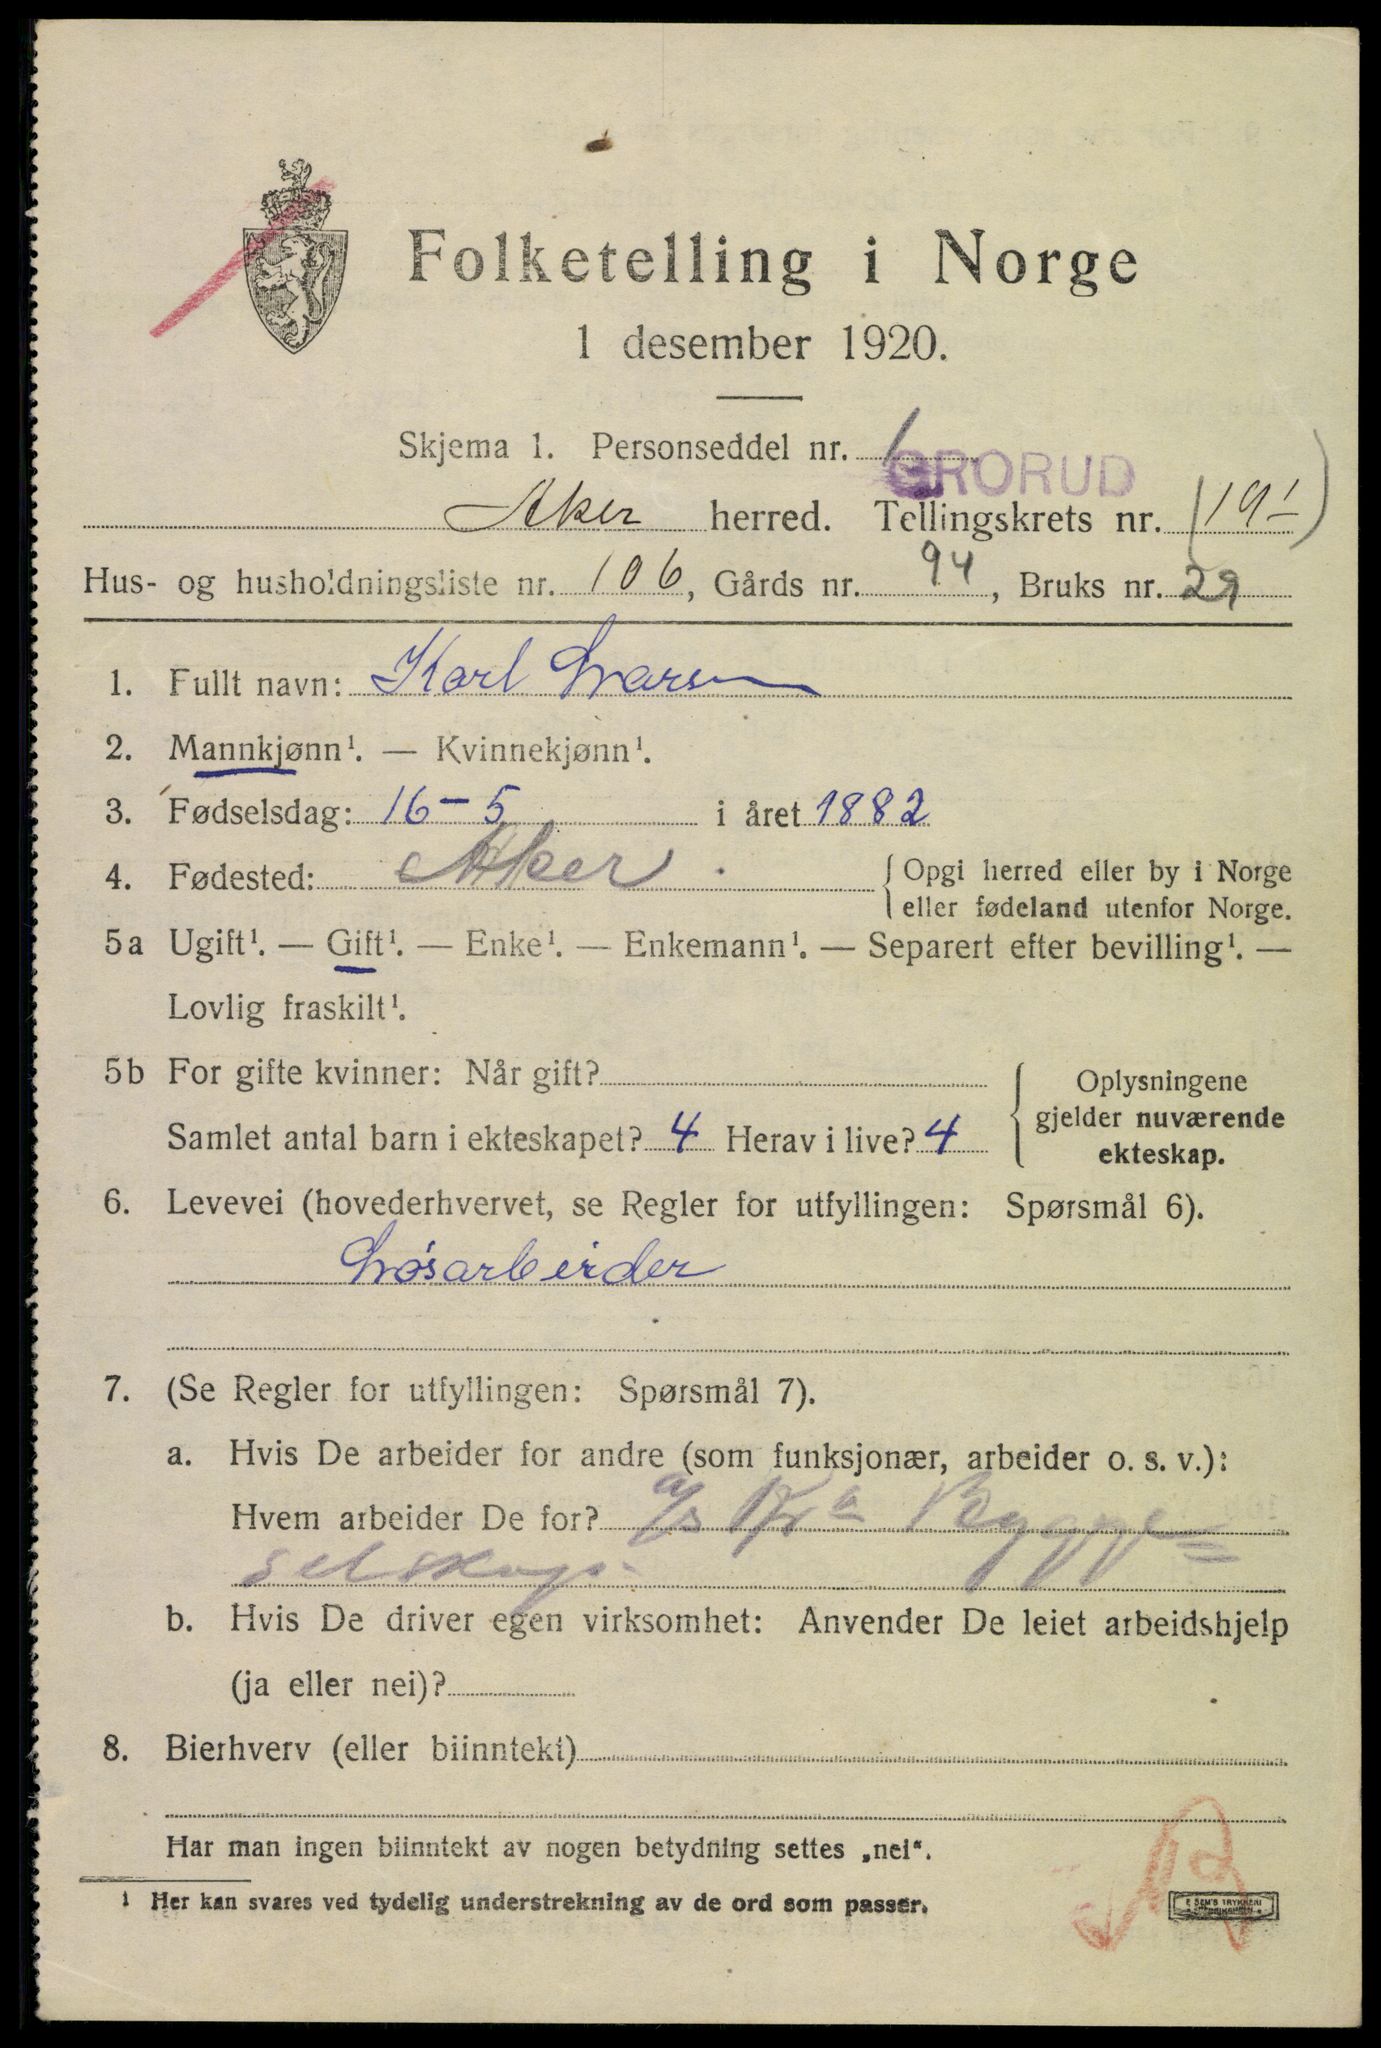 Folketelling i Norge
1 desember 1920.
Skjema 1. Personseddel nr. 1
GRORUD
Aker herred. Tellingskrets nr. (191)
Hus- og husholdningsliste nr. 106, Gårds nr. 94, Bruks nr. 29
1. Fullt navn: Karl Larsen
2. Mannkjønn¹. — Kvinnekjønn¹.
3. Fødselsdag: 16-5 i året 1882
4. Fødested: Aker. Opgi herred eller by i Norge
eller fødeland utenfor Norge.
5a Ugift¹. — Gift¹. — Enke¹. — Enkemann¹. — Separert efter bevilling¹. —
Lovlig fraskilt¹.
5b For gifte kvinner: Når gift?
Samlet antal barn i ekteskapet? 4 Herav i live? 4
Oplysningene
gjelder nuværende
ekteskap.
6. Levevei (hovederhvervet, se Regler for utfyllingen: Spørsmål 6).
Løsarbeider
7. (Se Regler for utfyllingen: Spørsmål 7).
a. Hvis De arbeider for andre (som funksjonær, arbeider o. s. v.):
Hvem arbeider De for? A/s Kra Bygge=
selskap.
b. Hvis De driver egen virksomhet: Anvender De leiet arbeidshjelp
(ja eller nei)?
8. Bierhverv (eller biinntekt)
Har man ingen biinntekt av nogen betydning settes „nei“.
1 Her kan svares ved tydelig understrekning av de ord som passer.